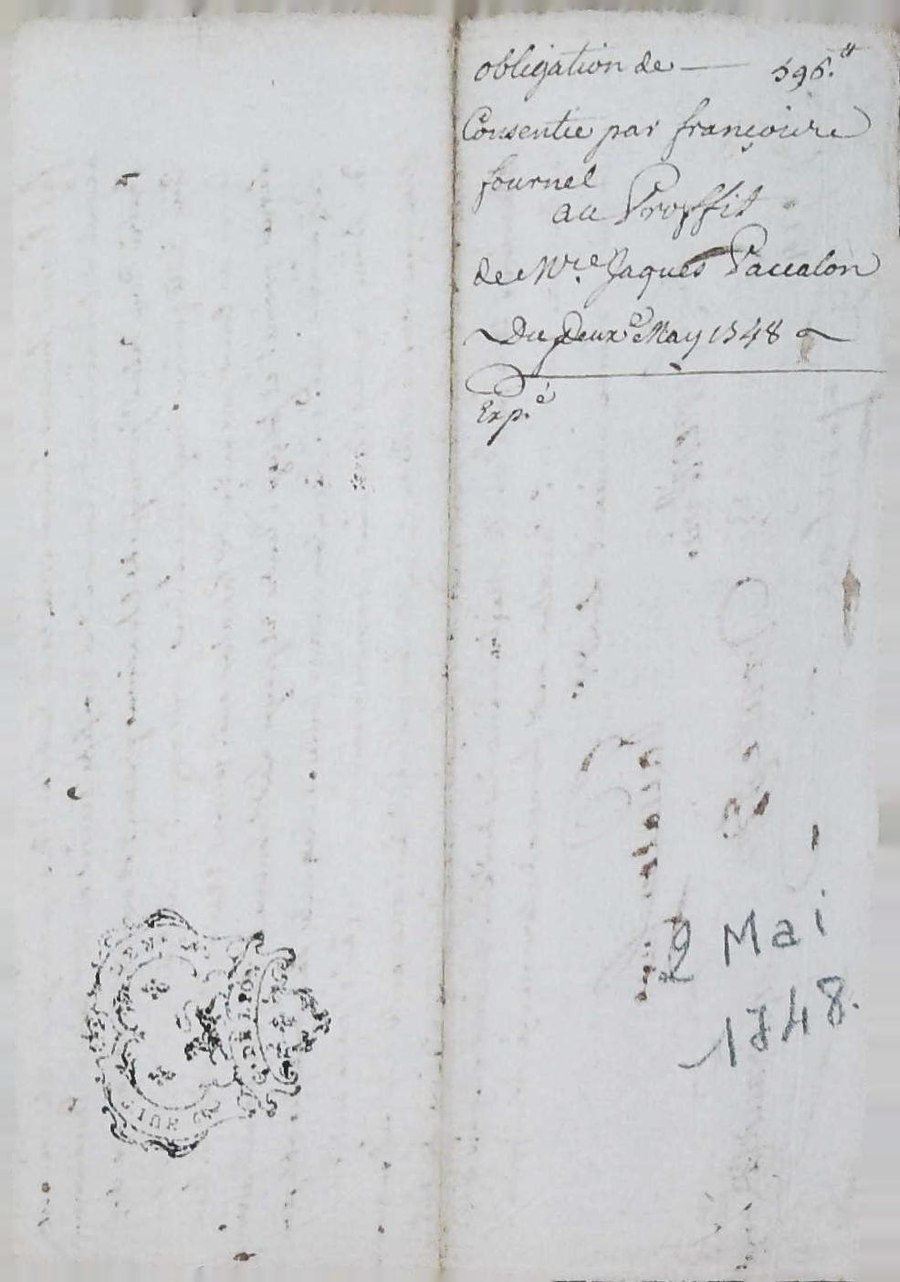 obligation de — 596.ᵗᵗ
Consentie par françoise
fournel
au Proffit
de Mʳᵉ Jaques Paccalon
Du Deuxᵉ May 1748
Expᵉ́
2 Mai
1748.
DE LYON